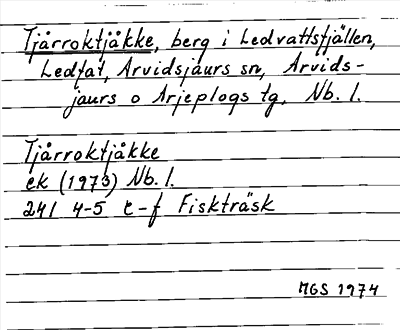 Tjårroktjåkke, berg i Ledvattsfjällen,
Ledfat, Arvidsjaurs sn, Arvids-
jaurs o Arjeplogs tg, Nb. l.
Tjårroktjåkke
ek (1973) Nb. l.
24I 4-5 e-f Fiskträsk
MGS 1974